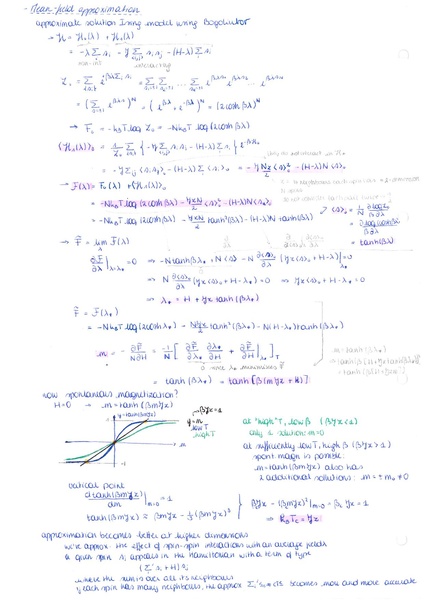 - Mean-field approximation
approximate solution Ising model using Bogoliubov
→ ℋ = ℋ₀(λ) + ℋ₁(λ)
= -λ Σ sᵢ - J Σ sᵢ sⱼ - (H-λ) Σ sᵢ
Z₀ = Σ e^{βλ Σᵢ sᵢ} = Σ Σ ... Σ e^{βλs₁} e^{βλs₂} ... e^{βλs_N}
= (Σ e^{βλs})^N = (e^{βλ} + e^{-βλ})^N = (2cosh βλ)^N
→ F₀ = -k_B T log Z₀ = -N k_B T log(2cosh βλ)
⟨ℋ₁(λ)⟩₀ = 1/Z₀ Σ {-J Σ sᵢ sⱼ - (H-λ) Σ sᵢ} e^{-βℋ₀}
= -J Σᵢⱼ ⟨sᵢ sⱼ⟩₀ - (H-λ) Σ ⟨sᵢ⟩₀ = -J Nz/2 ⟨s⟩₀² - (H-λ) N⟨s⟩₀
→ F(λ) = F₀(λ) + ⟨ℋ₁(λ)⟩₀
= -N k_B T log(2cosh βλ) - JzN/2 ⟨s⟩₀² - (H-λ) N⟨s⟩₀
= -N k_B T log(2cosh βλ) - JzN/2 tanh²(βλ) - (H-λ) N tanh(βλ)
⟨s⟩₀ = 1/N ∂log Z₀/∂βλ
= ∂log cosh βλ/∂βλ
= tanh(βλ)
→ F̃ = min F(λ)
∂F/∂λ |λ=λ₀ = 0 ⇒ -N tanh βλ + N⟨s⟩ - N ∂⟨s⟩₀/∂λ (Jz⟨s⟩₀ + H-λ) = 0
⇒ N ∂⟨s⟩₀/∂λ (Jz⟨s⟩₀ + H-λ₀) = 0 ⇒ Jz⟨s⟩₀ + H = λ₀
⇒ λ₀ = H + Jz tanh(βλ₀)
F̃ = F(λ₀)
= -N k_B T log(2cosh λ₀) - NJz/2 tanh²(βλ₀) - N(H-λ₀) tanh(βλ₀)
m = - ∂F̃/N∂H = -1/N [∂F̃/∂λ₀ ∂λ₀/∂H + ∂F̃/∂H |λ₀]_T
0 since λ₀ minimises F̃
= tanh(βλ₀) = tanh[β(mJz + H)]
now spontaneous magnetization?
H=0 → m = tanh(βmJz)
y = tanh(βmJz)
βJz = 1
y=m
low T
high T
m
at "high" T, low β (βJz<1)
only 1 solution: m=0
at sufficiently low T, high β (βJz>1)
spont. magn is possible:
m = tanh(βmJz) also has
2 additional solutions: m = ± m₀ ≠ 0
critical point
d tanh(βmJz)/dm |m=0 = 1
tanh(βmJz) ≈ βmJz - 1/3 (βmJz)³
βJz - (βmJz)²|m=0 = β_c Jz = 1
⇒ k_B T_c = Jz
approximation becomes better at higher dimensions
we're approx. the effect of spin-spin interactions with an average field
a given spin sᵢ appears in the hamiltonian with a term of type
(Σ'ⱼ sⱼ + H) sᵢ
where the sum is over all its neighbours
if each spin has many neighbours, the approx Σ'ⱼ sⱼ ≈ z⟨s⟩ becomes more and more accurate